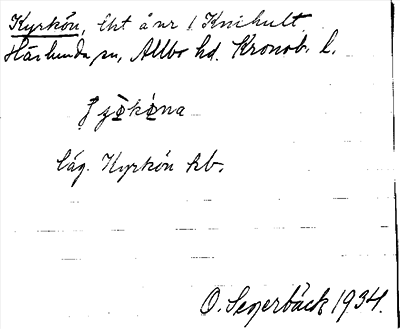 Kyrkön, lht å nr 1 Knihult
Härlunda sn, Allbo hd. Kronob. l.
läg. Kyrkön kb.
O. Segerbäck 1934.